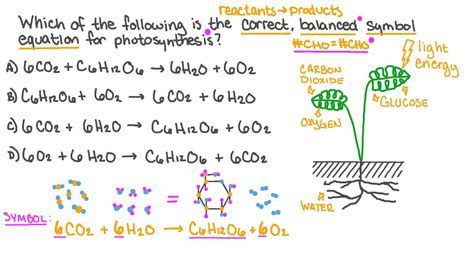 reactants → products
Which of the following is the correct, balanced symbol
equation for photosynthesis?
#CHO = #CHO
A) 6CO₂ + C₆H₁₂O₆ → 6H₂O + 6O₂
B) C₆H₁₂O₆ + 6O₂ → 6CO₂ + 6H₂O
C) 6CO₂ + 6H₂O → C₆H₁₂O₆ + 6O₂
D) 6O₂ + 6H₂O → C₆H₁₂O₆ + 6CO₂
light
energy
CARBON
DIOXIDE
GLUCOSE
OXYGEN
WATER
=
SYMBOL:
6CO₂ + 6H₂O → C₆H₁₂O₆ + 6O₂